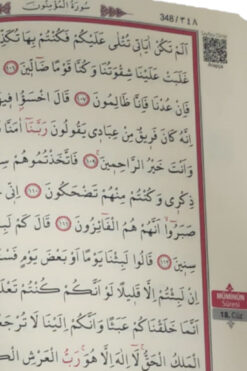 سُورَةُ الْمُؤْمِنُونَ
348 / ٣٤٨
اَلَمْ تَكُنْ اٰيَاتٖي تُتْلٰى عَلَيْكُمْ فَكُنْتُمْ بِهَا
غَلَبَتْ عَلَيْنَا شِقْوَتُنَا وَكُنَّا قَوْمًا ضَٓالّٖينَ ١٠٦
فَاِنْ عُدْنَا فَاِنَّا ظَالِمُونَ ١٠٧ قَالَ اخْسَؤُ۫ا
اِنَّهُ كَانَ فَرٖيقٌ مِنْ عِبَادٖي يَقُولُونَ رَبَّنَٓا اٰمَنَّا
وَاَنْتَ خَيْرُ الرَّاحِمٖينَ ١٠٩ فَاتَّخَذْتُمُوهُمْ
ذِكْرٖي وَكُنْتُمْ مِنْهُمْ تَضْحَكُونَ ١١٠ اِنّٖي
صَبَرُٓوا اَنَّهُمْ هُمُ الْفَٓائِزُونَ ١١١ قَالَ كَمْ
سِنٖينَ ١١٢ قَالُوا لَبِثْنَا يَوْمًا اَوْ بَعْضَ يَوْمٍ
اِنْ لَبِثْتُمْ اِلَّا قَلٖيلًا لَوْ اَنَّكُمْ كُنْتُمْ
اَنَّمَا خَلَقْنَاكُمْ عَبَثًا وَاَنَّكُمْ اِلَيْنَا لَا
الْمَلِكُ الْحَقُّ لَٓا اِلٰهَ اِلَّا هُوَ رَبُّ الْعَرْشِ
MÜMİNÛN
Sûresi
18. Cüz